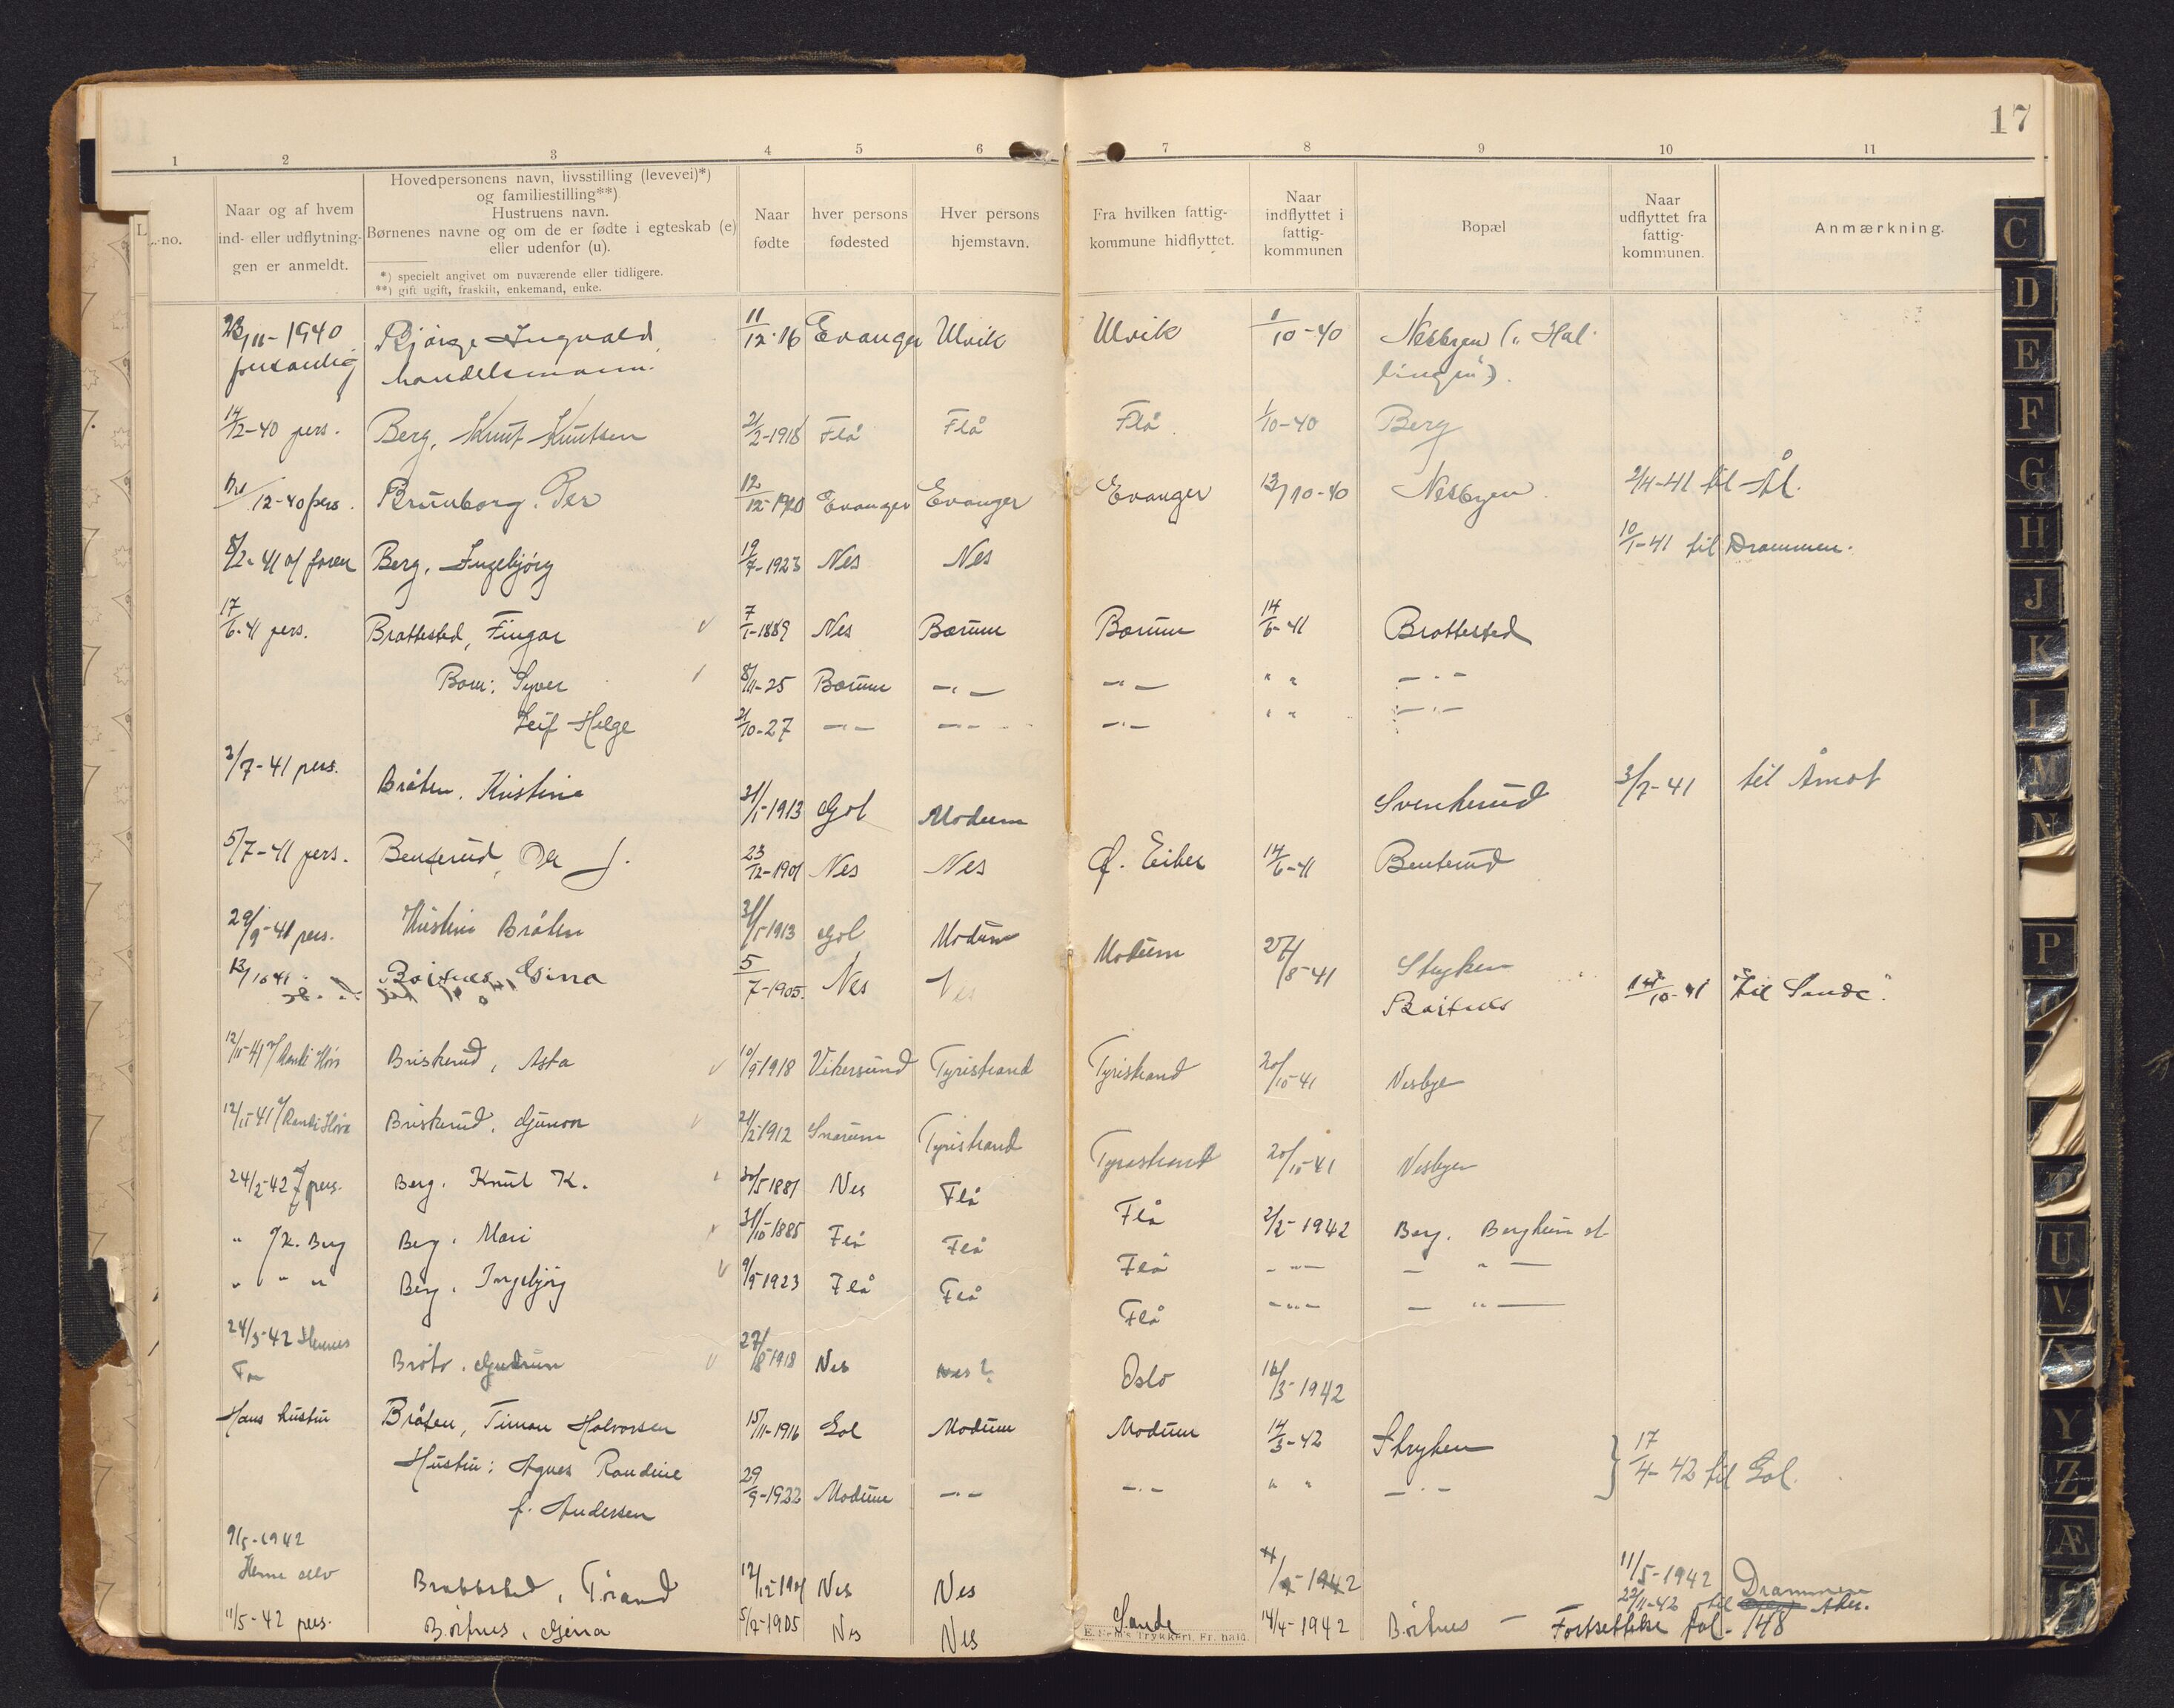 17
1 2 3 4 5 6 7 8 9 10 11
L.-no.
Naar og af hvem
ind- eller udflytnin-
gen er anmeldt.
Hovedpersonens navn, livsstilling (levevei)*)
og familiestilling**)
Hustruens navn.
Børnenes navne og om de er fødte i egteskab (e)
eller udenfor (u).
*) specielt angivet om nuværende eller tidligere.
**) gift ugift, fraskilt, enkemand, enke.
Naar
fødte
hver persons
fødested
Hver persons
hjemstavn.
Fra hvilken fattig-
kommune hidflyttet.
Naar
indflyttet i
fattig-
kommunen
Bopæl
Naar
udflyttet fra
fattig-
kommunen.
Anmærkning.
23/11-1940 Bjørge Ingvald, 11/12-16 Evanger Ulvik Ulvik 1/10-40 Nesbyen („Hal-
personlig handelsmann. lingen").
14/12-40 pers. Berg, Knut Knutsen 21/2-1918 Flå Flå Flå 1/10-40 Berg
12-40 pers. Brunborg. Per 12/12-1920 Evanger Evanger Evanger 13/10-40 Nesbyen 2/4-41 til Ål.
8/2-41 af faren Berg, Ingebjørg 19/7-1923 Nes Nes 10/1-41 til Drammen.
17/6-41 pers. Brattested, Fingar 7/1-1889 Nes Bærum Bærum 14/6-41 Brattested
Barn: Syver 8/11-25 Bærum —"— —"— " " —"—
Leif Helge 21/10-27 —"— —"— —"— " " —"—
3/7-41 pers. Bråten, Kristine 31/1-1913 Gol Modum Svenkerud 3/7-41 til Åmot
5/7-41 pers. Benterud, Ole J. 23/12-1901 Nes Nes Ø. Eiker 14/6-41 Benterud
29/9-41 pers. Kristine Bråten 31/1-1913 Gol Modum Modum 27/8-41 Stryken
13/10 41 Børtnes, Gina 5/7-1905. Nes Nes Børtnes 14/10-41 til Sande".
12/11-41 Briskerud, Asta 10/9 1918 Vikersund Tyristrand Tyristrand 20/10-41 Nesbye
12/11-41 Briskerud, Gunvor 21/2-1912 Snarum Tyristrand Tyristrand 20/10-41 Nesbyen
24/2-42 pers. Berg. Knut K. 30/5 1881 Nes Flå Flå 2/2-1942 Berg. Bergheim st
" K. Berg Berg. Mari 31/10-1885 Flå Flå Flå —"— — " —
" " " Berg. Ingebjørg 9/9 1923 Flå Flå Flå —"— — " —
24/3-42 Hennes Far Bråto. Gudrun 27/8-1918 Nes Nes? Oslo 16/3-1942
Hans hustru Bråten, Timan Halvorsen 15/11-1916 Gol Modum Modum 14/3-42 Stryken 17/4-42 til Gol.
Hustru: Agnes Randine 29/9-1922 Modum —"— —"— " " —"—
f. Andersen
9/5-1942
Henne selv Brattested, Tørand 12/12-1901 Nes Nes 1942 11/5-1942 Drammen
11/5-42 pers. Børtnes, Gina 5/7-1905 Nes Nes Sande 14/4-1942 Børtnes — 22/11-42 til Aker.
Fortsettelse fol. 148
E. Sem's Trykkeri, Fr.hald.
C
D
E
F
G
H
J
K
L
M
N
P
T
U
V
X
Y
Z
Æ